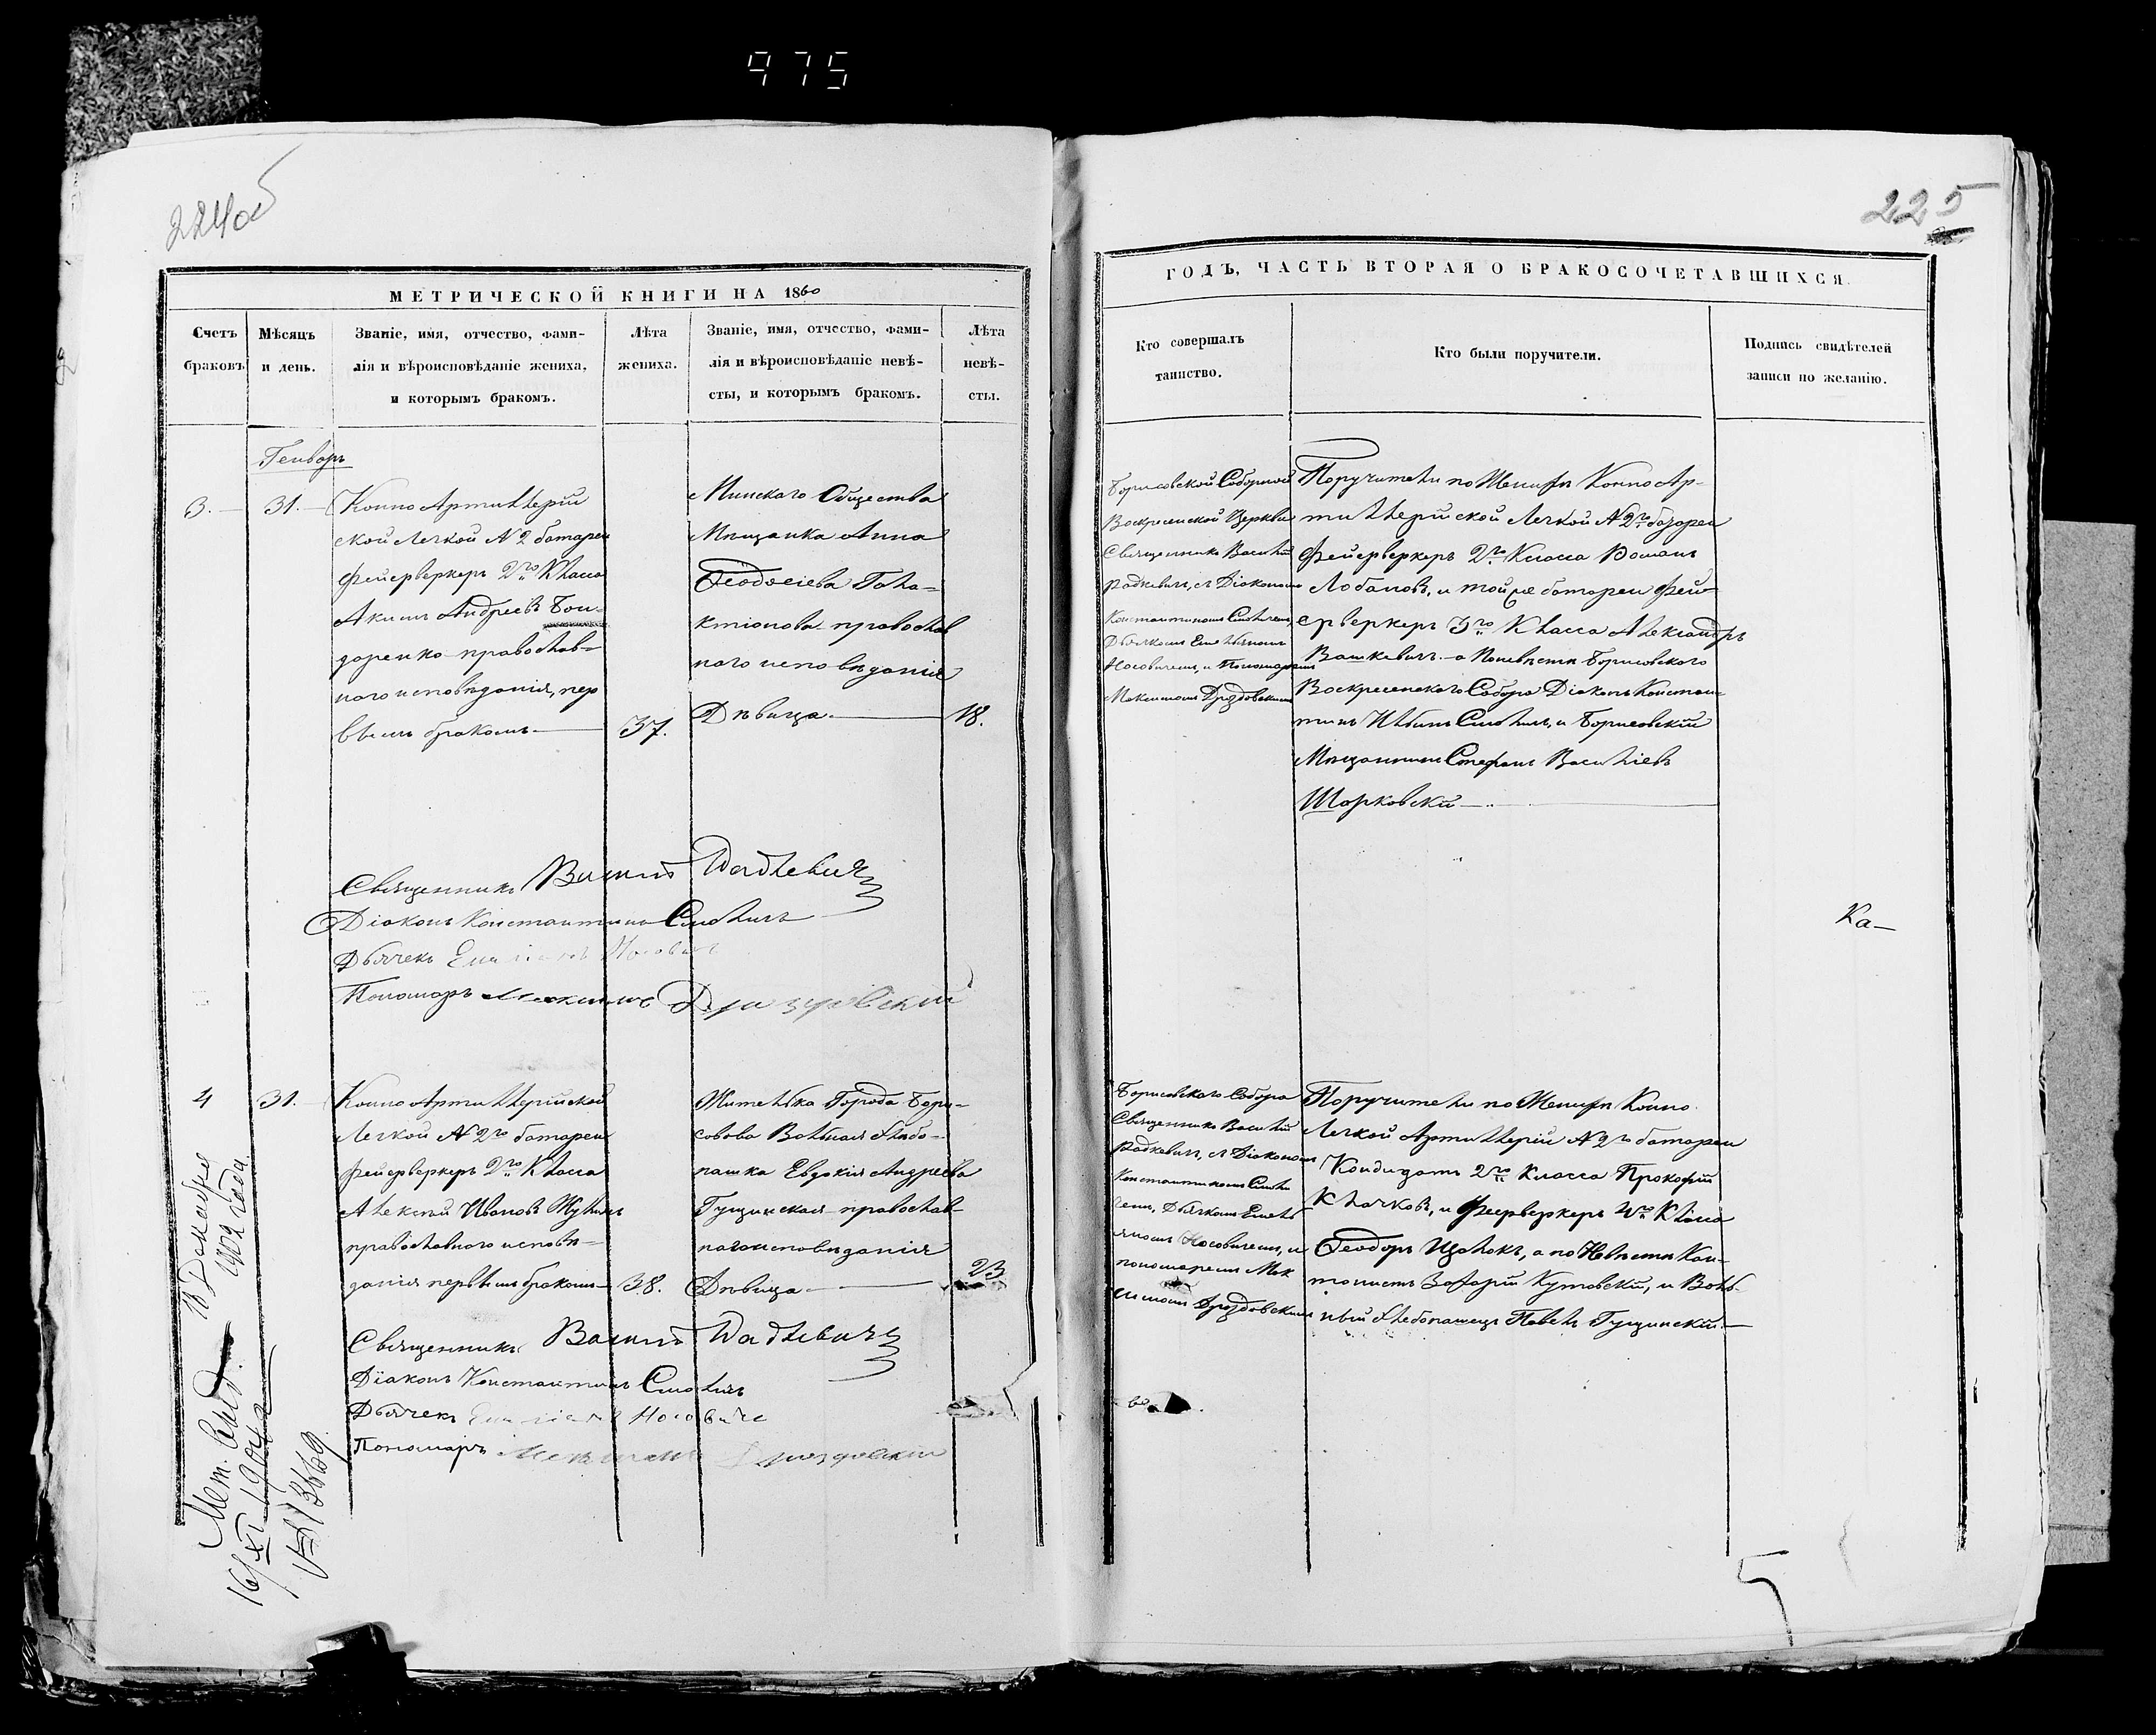 975
224об
225
МЕТРИЧЕСКОЙ КНИГИ НА 1860
ГОДЪ, ЧАСТЬ ВТОРАЯ О БРАКОСОЧЕТАВШИХСЯ.
Счетъ
браковъ
Мѣсяцъ
и день.
Званіе, имя, отчество, фами-
лія и вѣроисповѣданіе жениха,
и которымъ бракомъ.
Лѣта
жениха.
Званіе, имя, отчество, фами-
лія и вѣроисповѣданіе невѣ-
сты, и которымъ бракомъ.
Лѣта
невѣ-
сты.
Кто совершалъ
таинство.
Кто были поручители.
Подпись свидѣтелей
записи по желанію.
Генваръ
3.
31.
Конно Артиллерій
ской Легкой № 2 батареи
фейерверкеръ 2го Класса
Акимъ Андреевъ Бон-
даренко православ-
наго исповѣданія, пер
вымъ бракомъ
37.
Минскаго Общества
Мѣщанка Анна
Феодосіева Гала-
ктіонова православ
наго исповѣданія
Дѣвица
18.
Борисовской Соборной
Воскресенской Церкви
Священникъ Василій
Радкевичъ, съ Діакономъ
Константиномъ Смоличемъ,
Дьячкомъ Емельяномъ
Носовичемъ, и Пономаремъ
Максимомъ Дроздовскимъ
Поручители по Женихѣ Конно Ар-
тиллерійской Легкой № 2го батареи
фейерверкеръ 2го Класса Романъ
Лобановъ, и той же батареи фей-
ерверкеръ 3го Класса Александръ
Вашкевичъ. а по невѣстѣ Борисовскаго
Воскресенскаго Собора Діаконъ Констан-
тинъ Ильинъ Смоличъ, и Борисовскій
Мѣщанинъ Стефанъ Василіевъ
Шарковскій
Священникъ Василій Радкевичъ
Діаконъ Константинъ Смоличъ
Дьячекъ Емиліанъ Носовичъ
Пономарь Максимъ Дроздовскій
Ка-
4
31.
Конно Артиллерійской
Легкой № 2го батареи
фейерверкеръ 2го Класса
Алексѣй Ивановъ
православнаго исповѣ-
данія первымъ бракомъ
38.
Жителька Города Бори-
совова Вольная хлѣбо-
пашка Евдокія Андреева
Гущинская православ-
наго исповѣданія
Дѣвица
23
Борисовскаго Собора
Священникъ Василій
Радкевичъ, съ Діакономъ
Константиномъ Смоли
чемъ, Дьячкомъ Емель
яномъ Носовичемъ, и
пономаремъ Мак
симомъ Дроздовскимъ
Поручители по Женихѣ Конно
Легкой Артиллеріи № 2го батареи
Кандидатъ 2го Класса Прокофій
Клачковъ, и фейерверкеръ 4го Класса
Феодоръ Щолокъ, а по Невѣстѣ Кан-
тонистъ Захарій Кутовскій, и Воль-
ный хлебопашецъ Павелъ Гущинскій.
Священникъ Василій Радкевичъ
Діаконъ Константинъ Смоличъ
Дьячекъ Емиліанъ Носовичъ
Пономарь Максимъ Дроздовскій
Мет. Свид.
18 Декабря
1902 года
16/XI 1904 г.
№ 13669.